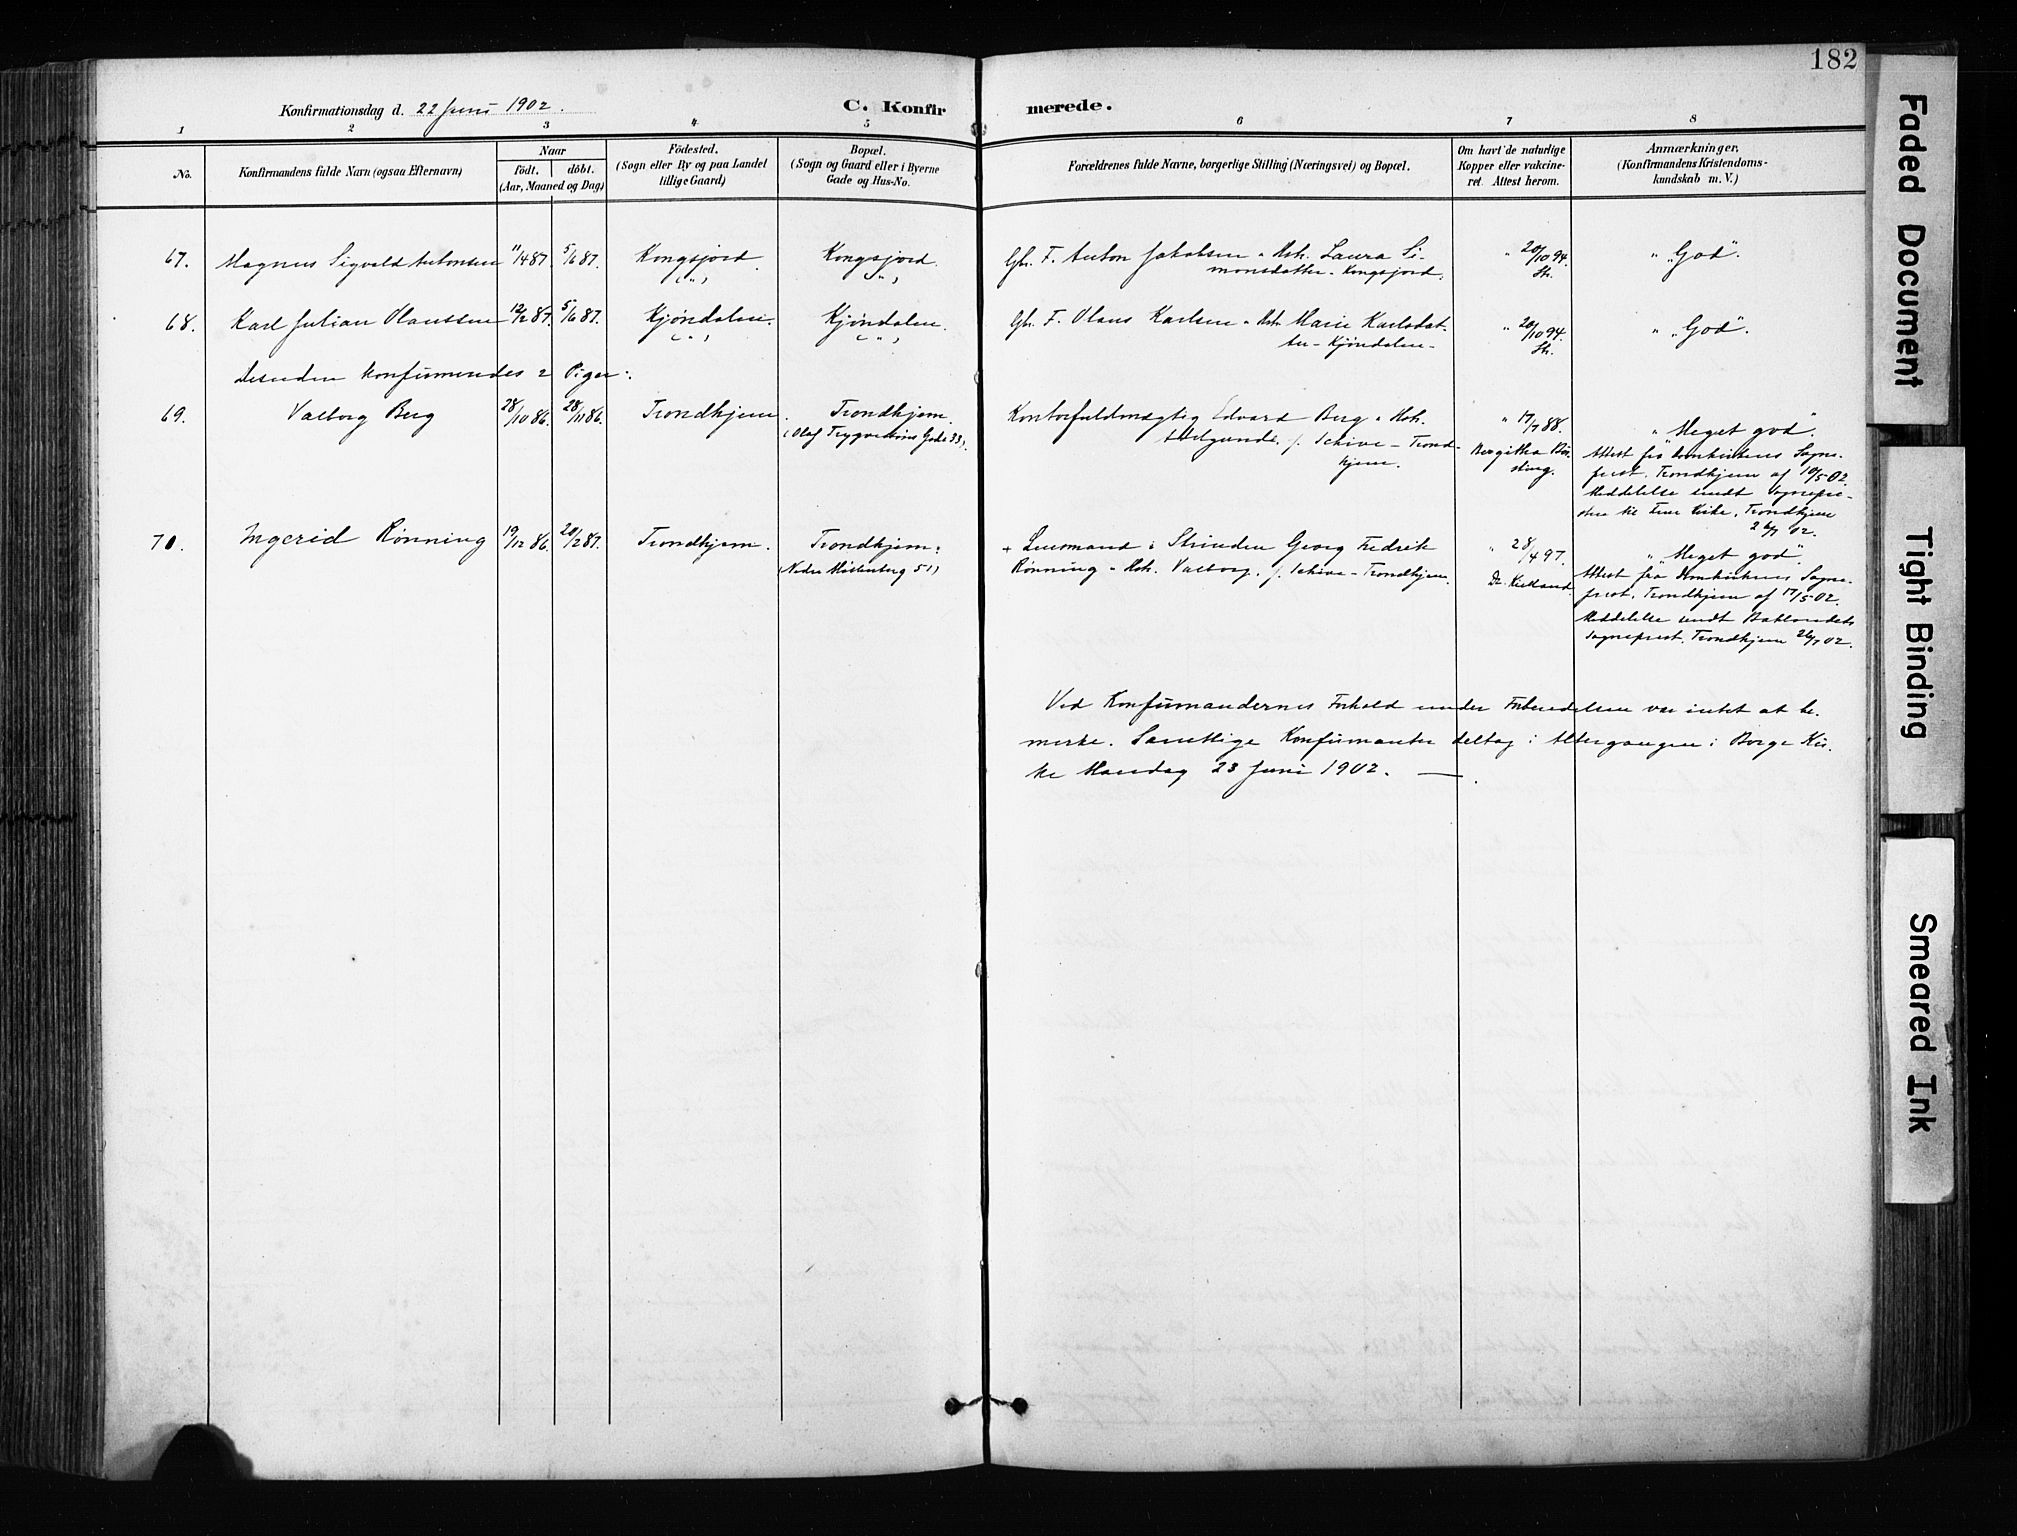 182
Konfirmationsdag d. 22 Juni 1902.
C. Konfirmerede.
1 2 3 4 5 6 7 8
No.
Konfirmandens fulde Navn (ogsaa Efternavn)
Naar
födt. döbt.
(Aar, Maaned og Dag)
Födested.
(Sogn eller By og paa Landet
tillige Gaard)
Bopæl.
(Sogn og Gaard eller i Byerne
Gade og Hus-No.
Forældrenes fulde Navne, borgerlige Stilling (Næringsvei) og Bopæl.
Om havt de naturlige
Kopper eller vakcine-
ret. Attest herom.
Anmærkninger.
(Konfirmandens Kristendoms-
kundskab m. V.)
67. Magnus Sigvald Antonsen 11/4 87. 5/6 87. Kongsjord. Kongsjord. Gbr. F. Anton Jakobsen & Hstr. Laura Si- " 20/10 94. " "God".
(") (") monsdatter - Kongsjord. Str.
68. Karl Julian Olaussen 12/2 87. 5/6 87. Kjöndalen. Kjöndalen. Gbr. F. Olaus Karlsen & Hstr. Marie Karlsdat- " 20/10 94. " "God".
(") (") ter - Kjöndalen - Str.
Desuden konfirmeredes 2 Piger:
69. Valborg Berg 28/10 86. 28/11 86. Trondhjem. Trondhjem. Kontorfuldmægtig Edvard Berg & Hstr. " 17/7 88. " "Meget god".
(Olaf Trygvesöns Gade 33). Adelgunde, f. Schive - Trond- Bergitha Attest fra Domkirkens Sogne-
hjem. prest, Trondhjem af 10/5 02.
Meddelelse sendt Sognepre-
sten til Frue Kirke, Trondhjem
26/7 02.
70. Ingerid Rönning 19/12 86. 20/2 87. Trondhjem. Trondhjem. + Lensmand i Strinden Georg Fredrik " 28/4 97. " "Meget god".
(Nedre Möllenberg 51) Rönning & Hstr. Valborg, f. Schive - Trondhjem. Dr. Kielland. Attest fra Domkirkens Sogne-
prest, Trondhjem af 17/5 02.
Meddelelse sendt Baklandets
Sogneprest, Trondhjem 26/7 02.
Ved Konfirmandernes Forhold under Forberedelsen var intet at be-
merke. Samtlige Konfirmanter deltog i Altergangen i Borge Kir-
ke Mandag 23 Juni 1902.
Faded Document
Tight Binding
Smeared Ink